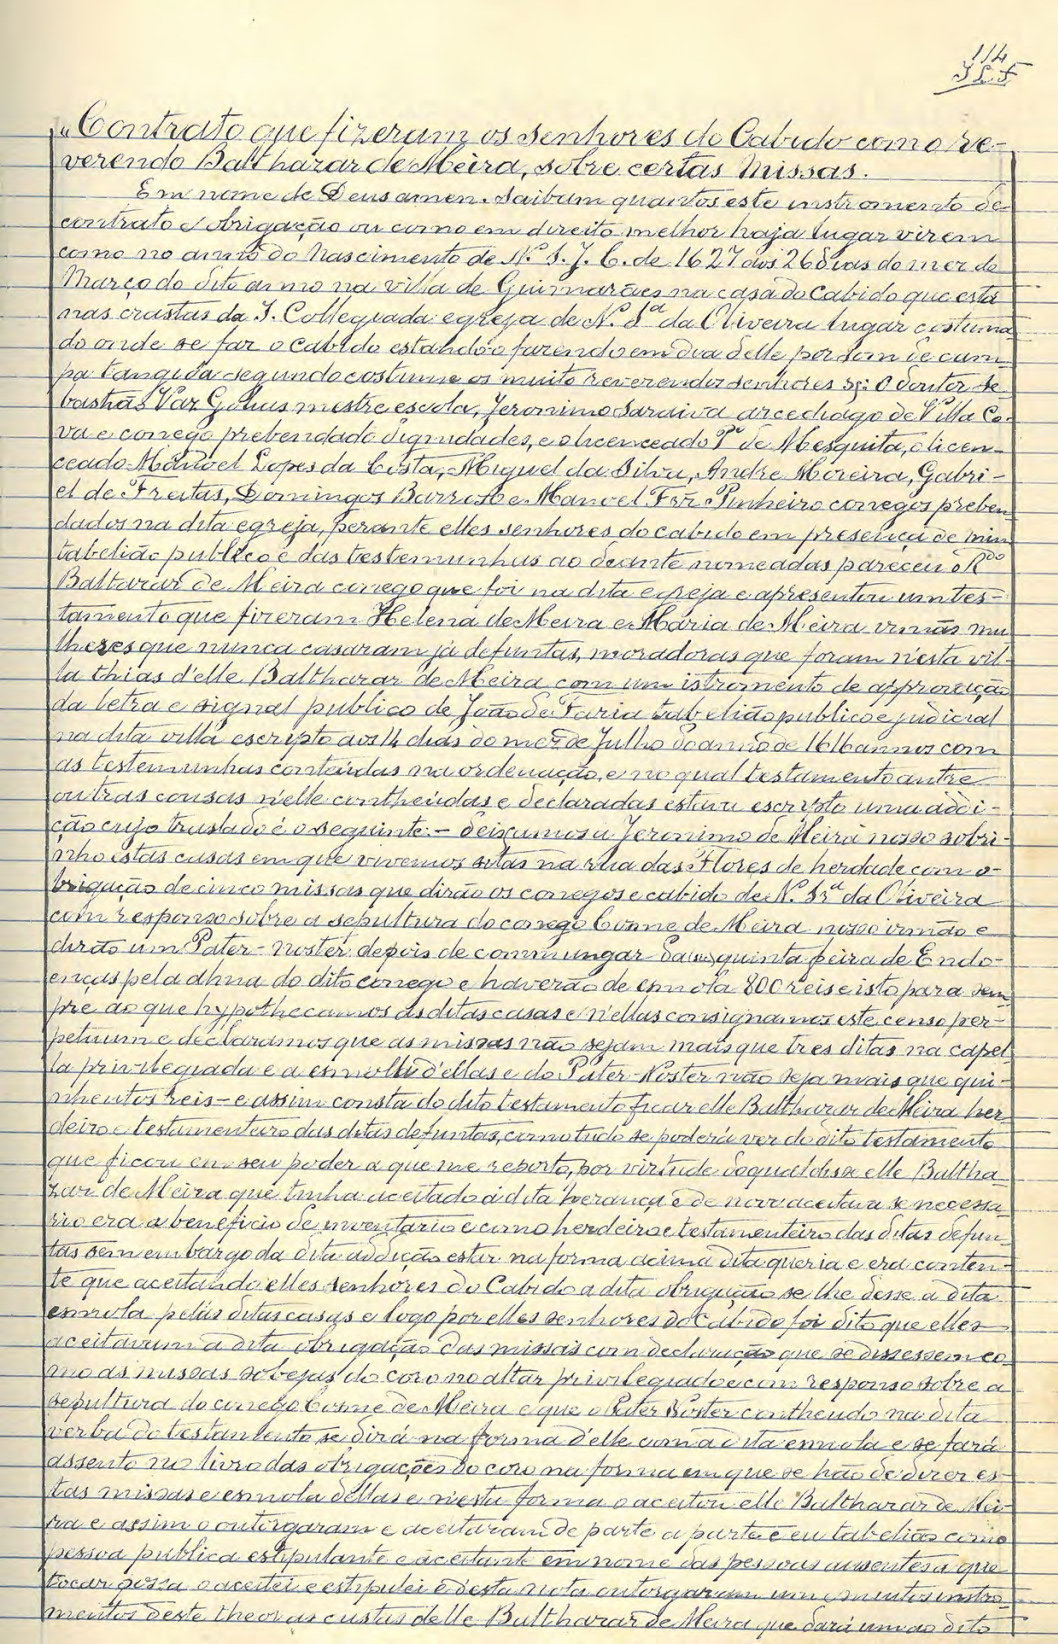 114
"Contrato que fizeram os senhores do Cabido com o re-
verendo Balthazar de Meira, sobre certas missas.
Em nome de Deus amen. Saibam quantos este instromento de
contrato e obrigação ou como em direito melhor haja lugar virem
como no anno do Nascimento de N.º S. J. C. de 1627 aos 26 dias do mez de
Março do dito anno na villa de Guimarães na casa do Cabido que está
nas crastas da I. Collegiada egreja de N.ª S.ra da Oliveira lugar costuma-
do onde se faz o cabido estando o fazendo em dia delle por som de cam-
pa tangida segundo costume os muito reverendos senhores sc: O doutor Se-
bastião Vaz Golias mestre escola, Jeronimo Saraiva arcediago de Villa Co-
va e conego prebendado dignidades, e o licenceado P.º de Mesquita, o licen-
ceado Manoel Lopes da Costa, Miguel da Silva, Andre Moreira, Gabri-
el de Freitas, Domingos Barroso e Manoel Frz Pinheiro conegos preben-
dados na dita egreja, perante elles senhores do cabido em presença de mim
tabelião publico e das testemunhas ao deante nomeadas pareceu o R.do
Baltazar de Meira conego que foi na dita egreja e apresentou um tes-
tamento que fizeram Helena de Meira e Maria de Meira irmãs mu-
lheres que nunca casaram já defuntas, moradoras que foram n'esta vil-
la thias d'elle Balthazar de Meira com um istromento de approvação
da letra e signal publico de João de Faria tabelião publico e judicial
na dita villa escripto aos 14 dias do mez de Julho do anno de 1616 annos com
as testemunhas conteúdas na ordenação, e no qual testamento antre
outras cousas n'elle contheúdas e declaradas estava escripto uma addi-
ção cujo traslado é o seguinte: - Deixamos a Jeronimo de Meira nosso sobri-
nho estas casas em que vivemos sitas na rua das Flores de herdade com o-
brigação de cinco missas que dirão os conegos e cabido de N.ª Sr.ª da Oliveira
com responso sobre a sepultura do conego Cosme de Meira nosso irmão e
dirão um Pater-Noster depois de commungar da quinta feira de Endo-
enças pela alma do dito conego e haverão de esmola 800 reis e isto para sem
pre ao que hypothecamos as ditas casas e n'ellas consignamos este censo per-
petuum e declaramos que as missas não sejam mais que tres ditas na capel
la privilegiada e a esmolla d'ellas e do Pater-Noster não seja mais que qui-
nhentos reis - e assim consta do dito testamento ficar elle Balthazar de Meira her
deiro e testamenteiro das ditas defuntas, como tudo se poderá ver do dito testamento
que ficou em seu poder a que me reporto, por virtude do qual disse elle Baltha-
zar de Meira que tinha aceitado a dita herança e de novo aceitava se necessa-
rio era a beneficio de inventario e como herdeiro e testamenteiro das ditas defun-
tas sem embargo da dita addição estar na forma acima dita queria e era conten-
te que aceitando elles senhores do Cabido a dita obrigação se lhe desse a dita
esmola pelas ditas casas e logo por elles senhores do Cabido foi dito que elles
aceitavam a dita obrigação das missas com declaração que se dissessem co-
mo as missas sobejas do coro no altar privilegiado e com responso sobre a
sepultura do conego Cosme de Meira e que o Pater Noster contheudo na dita
verba do testamento se dirá na forma d'elle com a dita esmola e se fará
assento no livro das obrigações do coro na forma em que se hão de dizer es-
tas missas e esmola dellas e n'esta forma o aceitou elle Balthazar de Mei-
ra e assim o outorgaram e aceitaram de parte a parte e eu tabelião como
pessoa publica estipulante e aceitante em nome das pessoas ausentes a que
tocar possa o aceitei e estipulei e d'esta nota outorgaram um e muitos instro-
mentos deste theor as custas delle Balthazar de Meira que dará um ao dito